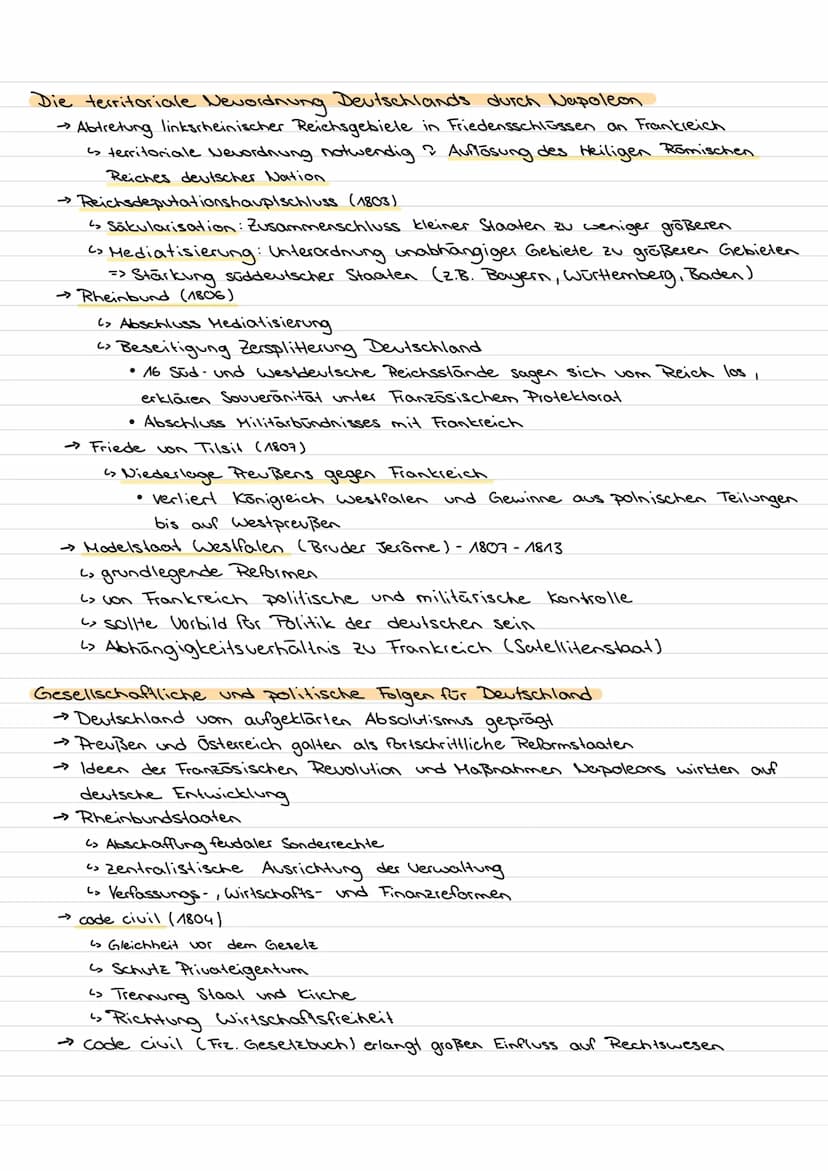 Die territoriale Neuordnung Deutschlands durch Napoleon
→ Abtretung linksrheinischer Reichsgebiete in Friedensschlüssen an Frankreich
↳ territoriale Neuordnung notwendig ? Auflösung des Heiligen Römischen
Reiches deutscher Nation
→ Reichsdeputationshauptschluss (1803)
↳ Säkularisation: Zusammenschluss kleiner Staaten zu weniger größeren
↳ Mediatisierung: Unterordnung unabhängiger Gebiete zu größeren Gebieten
=> Stärkung süddeutscher Staaten (z.B. Bayern, Württemberg, Baden)
→ Rheinbund (1806)
↳ Abschluss Mediatisierung
↳ Beseitigung Zersplitterung Deutschland
• 16 Süd- und westdeutsche Reichsstände sagen sich vom Reich los,
erklären Souveränität unter Französischem Protektorat
• Abschluss Militärbündnisses mit Frankreich
→ Friede von Tilsit (1807)
↳ Niederlage Preußens gegen Frankreich
• verliert Königreich Westfalen und Gewinne aus polnischen Teilungen
bis auf Westpreußen
→ Modelstaat Westfalen (Bruder Jerôme) - 1807 - 1813
↳ grundlegende Reformen
↳ von Frankreich politische und militärische Kontrolle
↳ sollte Vorbild für Politik der deutschen sein
↳ Abhängigkeitsverhältnis zu Frankreich (Satellitenstaat)
Gesellschaftliche und politische Folgen für Deutschland
→ Deutschland vom aufgeklärten Absolutismus geprägt
→ Preußen und Österreich galten als fortschrittliche Reformstaaten
→ Ideen der Französischen Revolution und Maßnahmen Napoleons wirkten auf
deutsche Entwicklung
→ Rheinbundstaaten
↳ Abschaffung feudaler Sonderrechte
↳ zentralistische Ausrichtung der Verwaltung
↳ Verfassungs-, Wirtschafts- und Finanzreformen
→ code civil (1804)
↳ Gleichheit vor dem Gesetz
↳ Schutz Privateigentum
↳ Trennung Staat und Kirche
↳ Richtung Wirtschaftsfreiheit
→ code civil (Frz. Gesetzbuch) erlangt großen Einfluss auf Rechtswesen